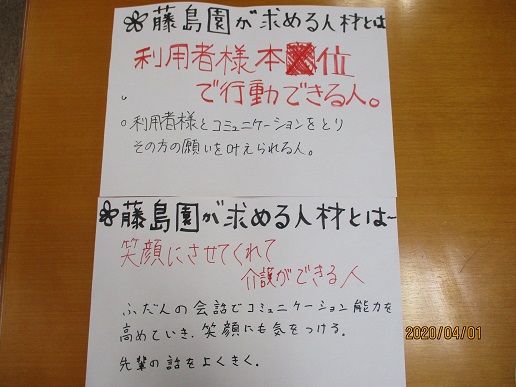 ❀藤島園が求める人材とは
利用者様本位
で行動できる人。
○利用者様とコミュニケーションをとり
その方の願いを叶えられる人。
❀藤島園が求める人材とは～
笑顔にさせてくれて
介護ができる人
ふだんの会話でコミュニケーション能力を
高めていき、笑顔にも気をつける。
先輩の話をよくきく。
2020/04/01